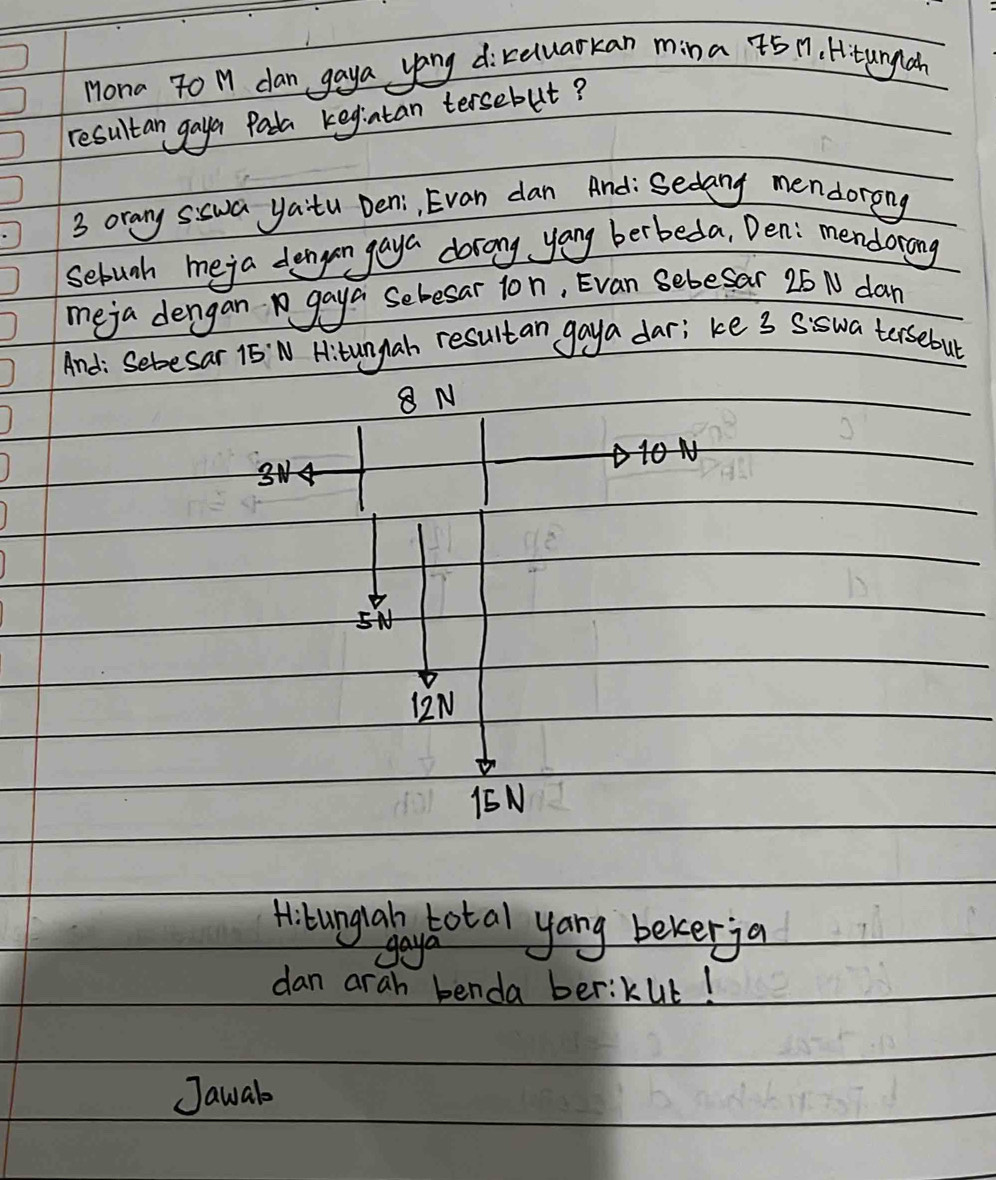 Mona 70 N dan gaya yang dikeluarkan mina 75 N. Hitunglah
resultan gaya Pada kegiatan tersebut?
3 orang siswa yaitu Deni, Evan dan Andi Sedang mendorong
sebuah meja dengan gaya dorong yang berbeda. Deni mendorong
meja dengan gaya Sebesar 10 n, Evan Sebesar 25 N dan
Andi Sebesar 15 N Hitunglah resultan gaya dari ke 3 Siswa tersebut
8 N
3N 10 N
5N
12N
15 N
Hitunglah total yang bekerja
gaya
dan arah benda berikut!
Jawab